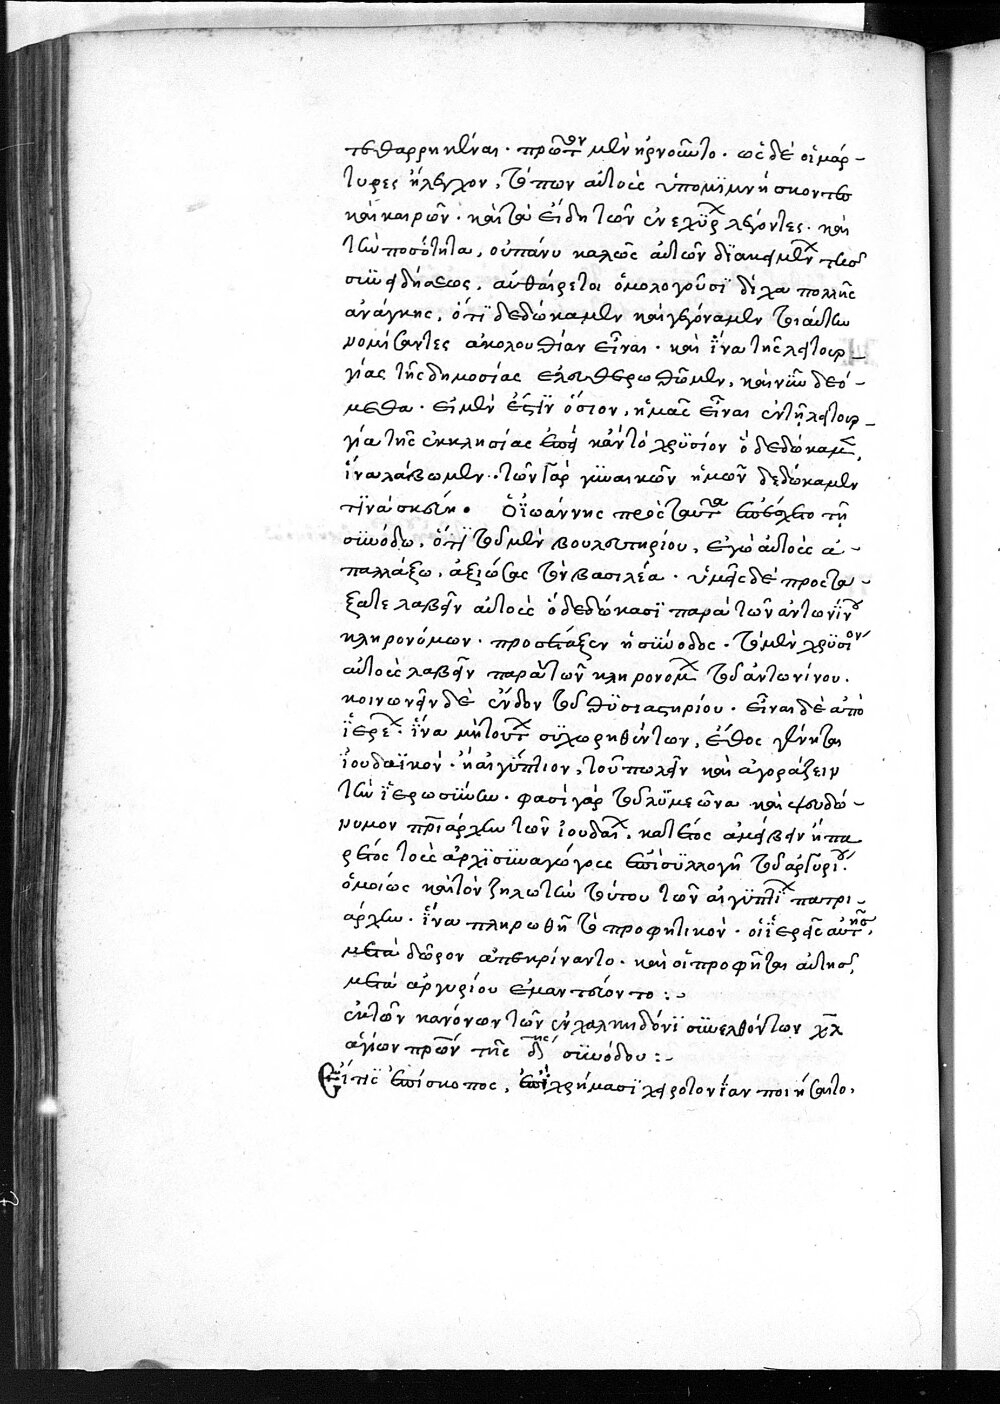 τεθαρρηκέναι· πρῶτον μὲν ἠρνοῦντο· ὡς δὲ οἱ μάρ-
τυρες ἤλεγχον, τόπων αὐτοὺς ὑπομϊμνήσκοντες
καὶ καιρῶν· καὶ τὰ εἴδη τῶν ἐνεχύρ λέγοντες· καὶ
τὴν ποσότητα, οὐ πάνυ καλῶς αὐτῶν δϊακειμεν τῆς
συνειδήσεως, αὐθαίρετοι ὁμολογοῦσϊ δίχα πολλῆς
ἀνάγκης, ὅτϊ δεδώκαμεν καὶ γεγόναμεν
νομίσαντες ἀκολουθίαν εἶναι· καὶ ἵνα τῆς λειτουρ-
γίας τῆς δημοσίας ἐλευθερωθῶμεν, καὶ νῦν δεό-
μεθα· εἰ μὲν ἐστϊν ὅσιον, ἡμᾶς εἶναι ἐν τῇ λειτουρ-
γία τῆς ἐκκλησίας ἐπεὶ κἂν τὸ χρϋσίον ὃ δεδώκαμεν,
ἵνα λάβωμεν· τῶν γὰρ γϋναικῶν ἡμῶν δεδώκαμεν
τϊνὰ σκεύη· Ὁ ἰωάννης πρὸς ταῦτα ὑπέσχετο τῇ
συνόδω, ὅτϊ τοῦ μὲν βουλευτηρίου, ἐγὼ αὐτοὺς ἀ-
παλλάξω, ἀξιώσας τὸν βασιλέα· ὑμεῖς δὲ προστά-
ξατε λαβεῖν αὐτοὺς ὃ δεδώκασϊ παρὰ τῶν ἀντωνίνου
κληρονόμων· προσέταξεν ἡ σύνοδος· τὸ μὲν χρϋσίον
αὐτοὺς λαβεῖν παρὰ τῶν κληρονομ τοῦ ἀντωνίνου·
κοινωνεῖν δὲ ἔνδον τοῦ θϋσιαστηρίου· εἶναι δὲ ἀπὸ
ἱερέ· ἵνα μὴ τουτ σϋγχωρηθέντων, ἔθος γένηται
ἰουδαϊκὸν· ἢ αἰγύπτιον, τοῦ πωλεῖν καὶ ἀγοράζειν
τὴν ἱερωσύνην· φασὶ γὰρ τὸν λϋμεῶνα καὶ ψευδώ-
νυμον πριάρχην τῶν ἰουδαί· κατ' ἔτος ἀμείβειν ἢ πα
ρ' ἔτος τοὺς ἀρχϊσϋναγώγους ἐπὶ σϋλλογῆ τοῦ ἀργϋρίου·
ὁμοίως καὶ τὸν ζηλωτὴν τούτου τῶν αἰγϋπτϊ πατρι-
άρχην· ἵνα πληρωθῆ τὸ προφητικὸν· οἱ ἱερεῖς αὐτῆς,
μετὰ δῶρον ἀπεκρίναντο· καὶ οἱ προφῆται αὐτῆς,
μετὰ ἀργυρίου ἐμαντεύοντο :-
ἐκ τῶν κανόνων τῶν ἐν χαλκηδόνϊ συνελθόντων χλ
ἁγίων πρων τῆς δης συνόδου :-
Εἴ τις ἐπίσκοπος, ἐπὶ χρήμασϊ χειροτονίαν ποιήσαιτο,